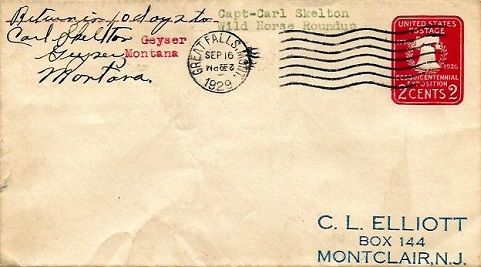 Return in 10 days to
Carl Skelton
Geyser
Montana.
Geyser
Montana
Capt-Carl Skelton
Wild Horse Roundup
GREAT FALLS, MONT.
SEP 16
2 30 PM
1929
UNITED STATES
POSTAGE
1926
SESQUICENTENNIAL
EXPOSITION
2 CENTS 2
C. L. ELLIOTT
BOX 144
MONTCLAIR, N.J.